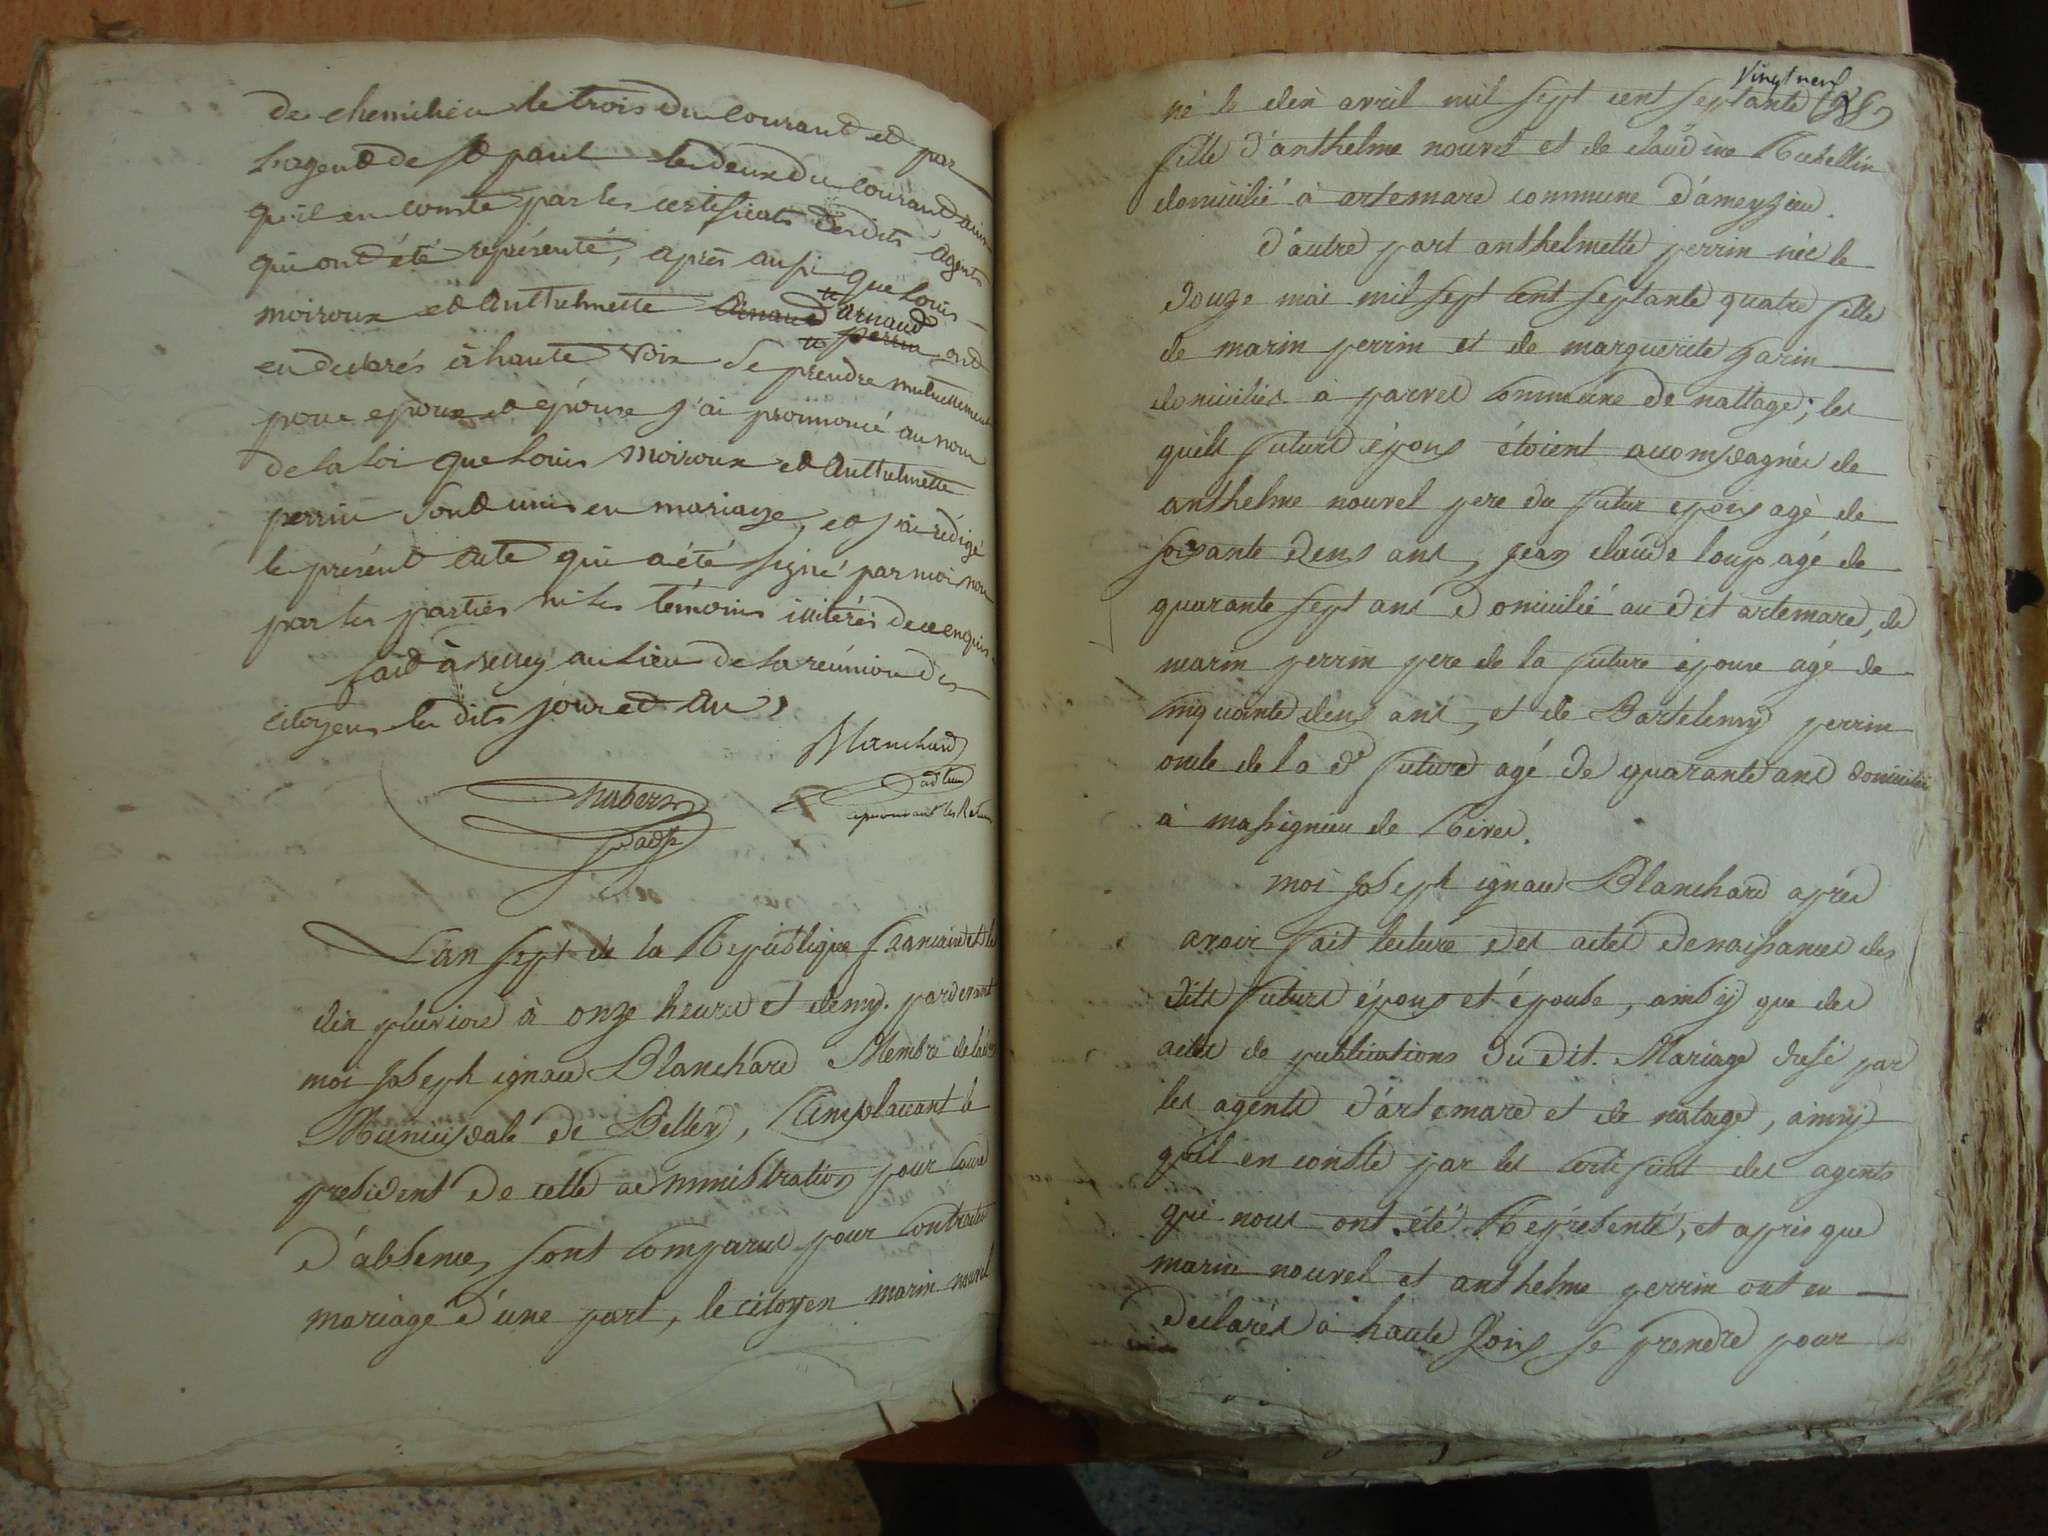 de chemilieu le trois du courant et par
l'agent de st paul le deux du courant ainsi
qu'il en conste par les certificats desdits agents
qui ont été représenté, après aussi que Louis
moiroux et Anthelmette Arnaud arnaud
perrin ont
en declarés à haute voix se prendre mutuellement
pour epoux et épouse j'ai prononcé au nom
de la loi que Louis Moiroux et Anthelmette
perrin sont unis en mariage, et j'ai rédigé
le présent acte qui a été signé par moi non
par les parties ni les témoins illiterés de ce enquis
fait à Belley au lieu de la réunion des
citoyens les dits jour et an
Blanchard
adjoint
approuvant les
L'an sept de la Republique francaise et le
dix pluviose à onze heures et demy. pardevant
moi Joseph ignace Blanchard Membre de
Municipale de Belley, Remplaccant le
president de cette administration pour cause
d'absence, sont comparus pour contracter
mariage d'une part, le citoyen marin nouvel
vingt neuf
né le dix avril mil sept cent septante
fille d'anthelme nouvel et de claudine Rubellin
domicilié à artemare commune d'ameyzieu.
d'autre part anthelmette perrin née le
douze mai mil sept cent septante quatre fille
de marin perrin et de marguerite garin
domiciliés à parves commune de nattage; les
quels futurs épous étoient accompagnés de
anthelme nouvel pere du futur epous agé de
soixante deus ans, Jean claude loup agé de
quarante sept ans domicilié au dit artemare, de
marin perrin pere de la future épouse agé de
cinquante deus ans, et de Bartelemy perrin
oncle de la de future agé de quarante ans domicilié
à massignieu de Rives.
moi Joseph ignace Blanchard aprés
avoir fait lecture des actes de naissances des
dits futurs épous et épouse, ainsy que des
actes de publications du dit Mariage par
les agents d'artemare et de natage, ainsy
qu'il en conste par les certificat des agents
qui nous ont été Représenté, et apres que
marin nouvel et anthelme perrin ont en
declarés à haute vois se prendre pour